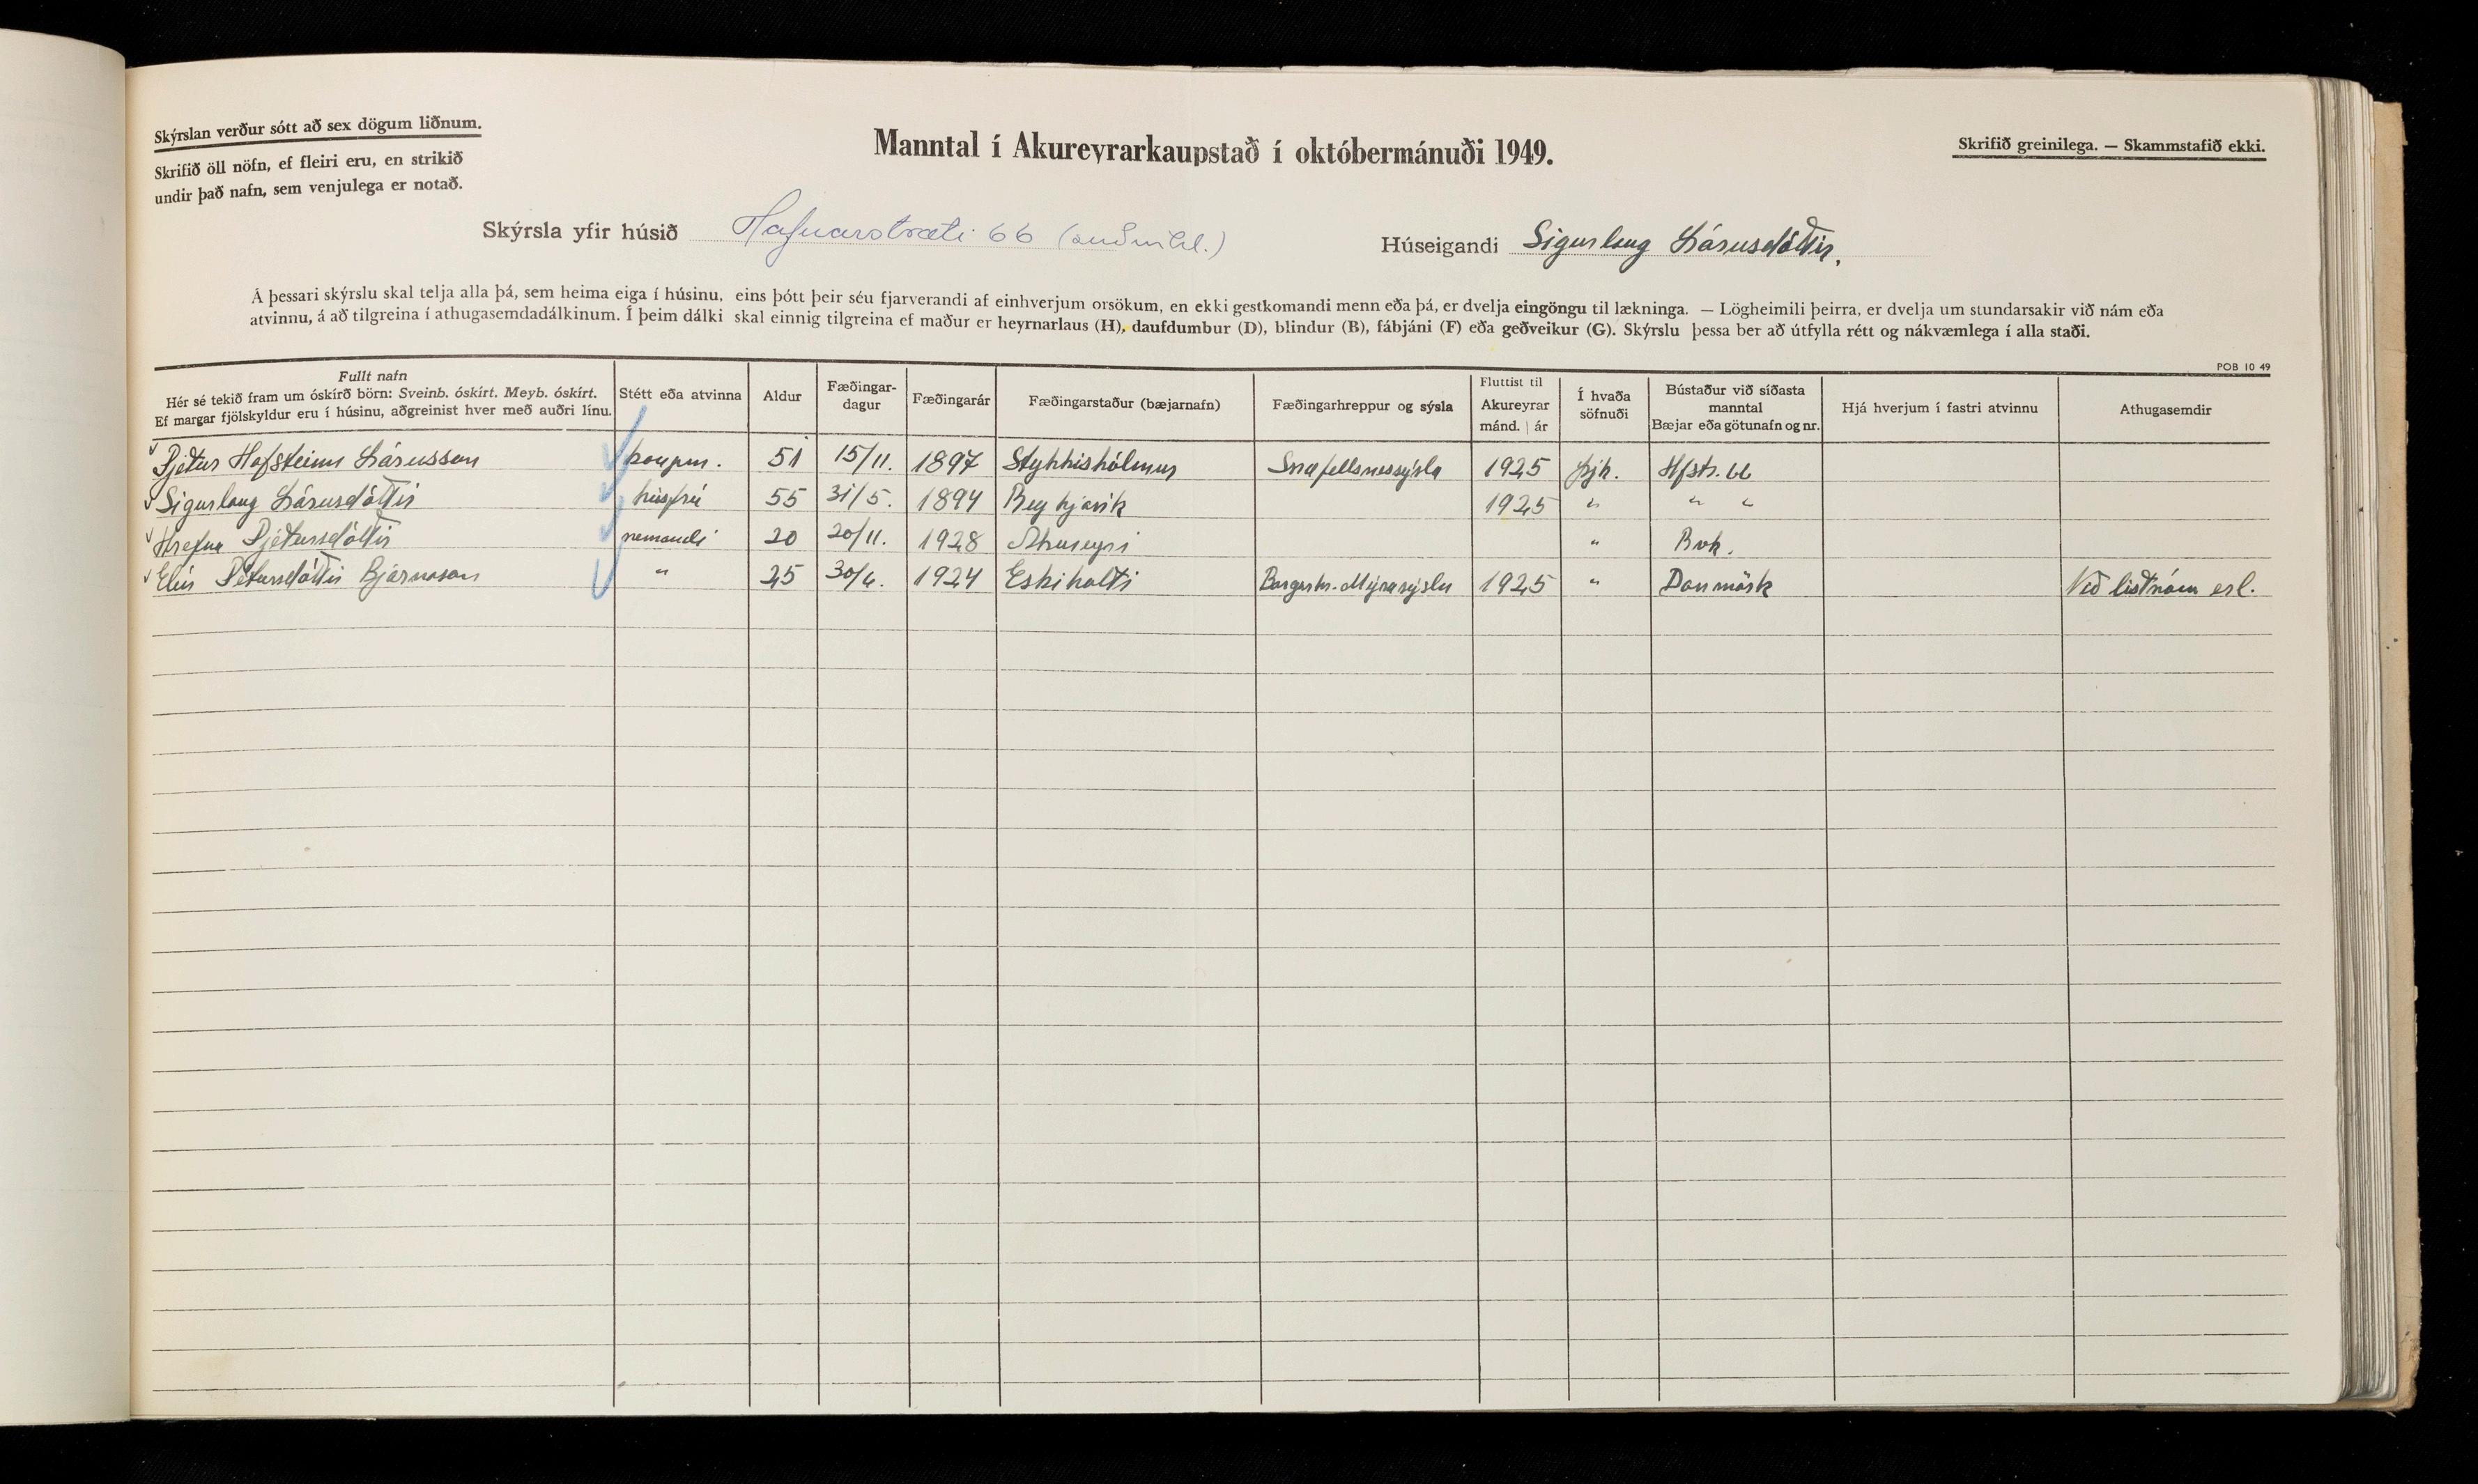 Skýrslan verður sótt að sex dögum liðnum.
Skrifið öll nöfn, ef fleiri eru, en strikið
undir það nafn, sem venjulega er notað.
Manntal í Akureyrarkaupstað í októbermánuði 1949.
Skrifið greinilega. — Skammstafið ekki.
Skýrsla yfir húsið Hafnarstræti 66
Húseigandi Sigurlaug Lárusdóttir.
Á þessari skýrslu skal telja alla þá, sem heima eiga í húsinu, eins þótt þeir séu fjarverandi af einhverjum orsökum, en ekki gestkomandi menn eða þá, er dvelja eingöngu til lækninga. — Lögheimili þeirra, er dvelja um stundarsakir við nám eða
atvinnu, á að tilgreina í athugasemdadálkinum. Í þeim dálki skal einnig tilgreina ef maður er heyrnarlaus (H), daufdumbur (D), blindur (B), fábjáni (F) eða geðveikur (G). Skýrslu þessa ber að útfylla rétt og nákvæmlega í alla staði.
POB 10 49
Fullt nafn
Hér sé tekið fram um óskírð börn: Sveinb. óskírt. Meyb. óskírt.
Ef margar fjölskyldur eru í húsinu, aðgreinist hver með auðri línu.
Stétt eða atvinna
Aldur
Fæðingar-
dagur
Fæðingarár
Fæðingarstaður (bæjarnafn)
Fæðingarhreppur og sýsla
Fluttist til
Akureyrar
mánd. | ár
Í hvaða
söfnuði
Bústaður við síðasta
manntal
Bæjar eða götunafn og nr.
Hjá hverjum í fastri atvinnu
Athugasemdir
Pjetur Hafsteinn Lárusson kaupm. 51 15/11. 1897 Stykkishólmur Snæfellsnessýsla 1925 Þjk. Hfstr. 66
Sigurlaug Lárusdóttir húsfrú 55 31/5. 1894 Reykjavík 1925 " " "
Hrefna Pjetursdóttir nemandi 20 20/11. 1928 Akureyri " Rvk.
Elín Pétursdóttir Bjarnason " 25 30/6. 1924 Eskiholti Borgarhr. Mýrasýslu 1925 " Danmörk Við listnám erl.